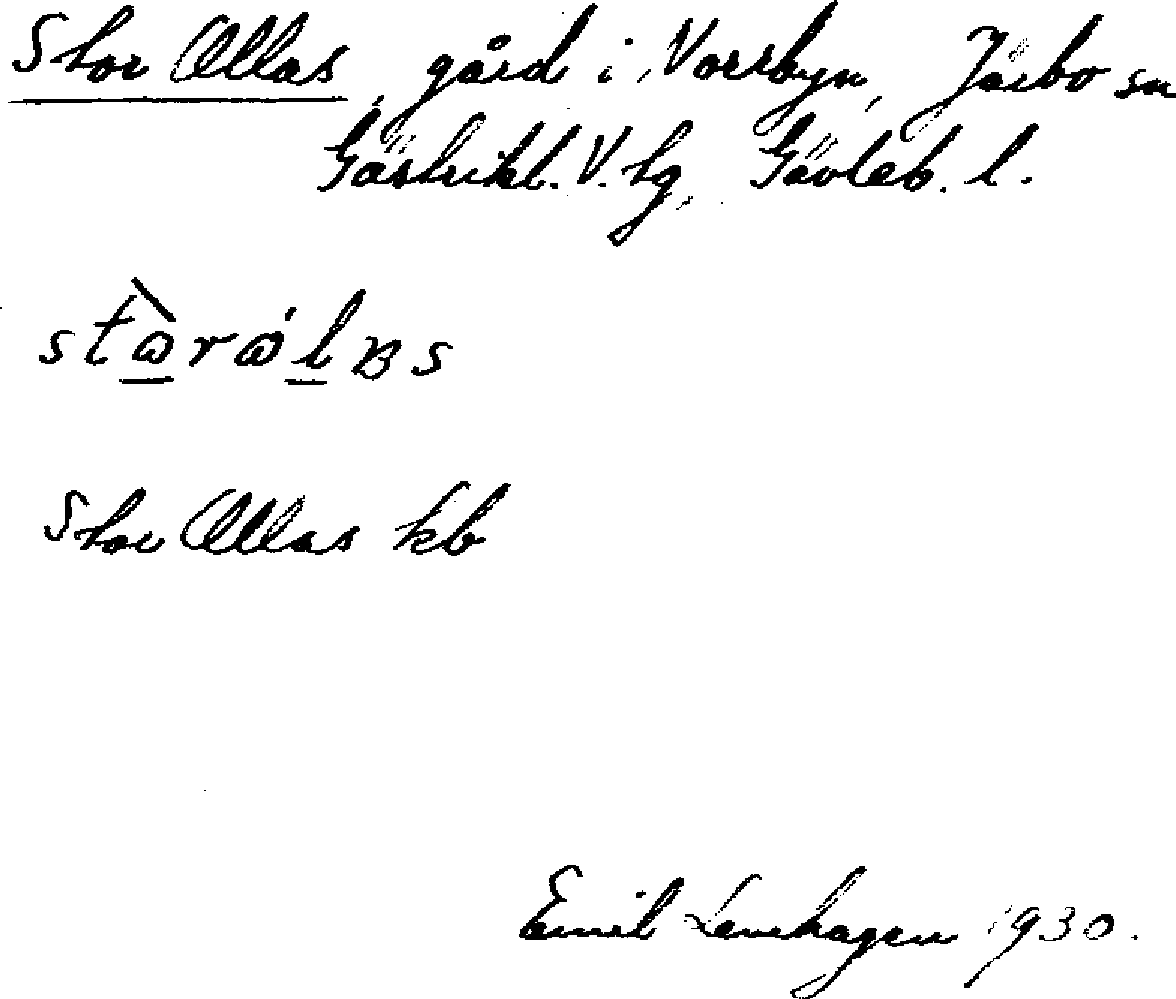 Stor Ollas, gård i Vorsbyn, Järbo sn
Gästrikl. V. tg, Gävleb. l.
Stor Ollas kb
Emil Levehagen 1930.